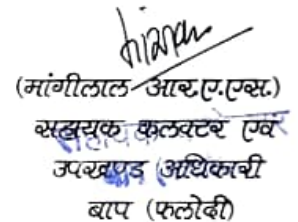 (मांगीलाल आर.ए.एस.)
सहायक कलक्टर एवं
उपखण्ड अधिकारी
बाप (फलोदी)